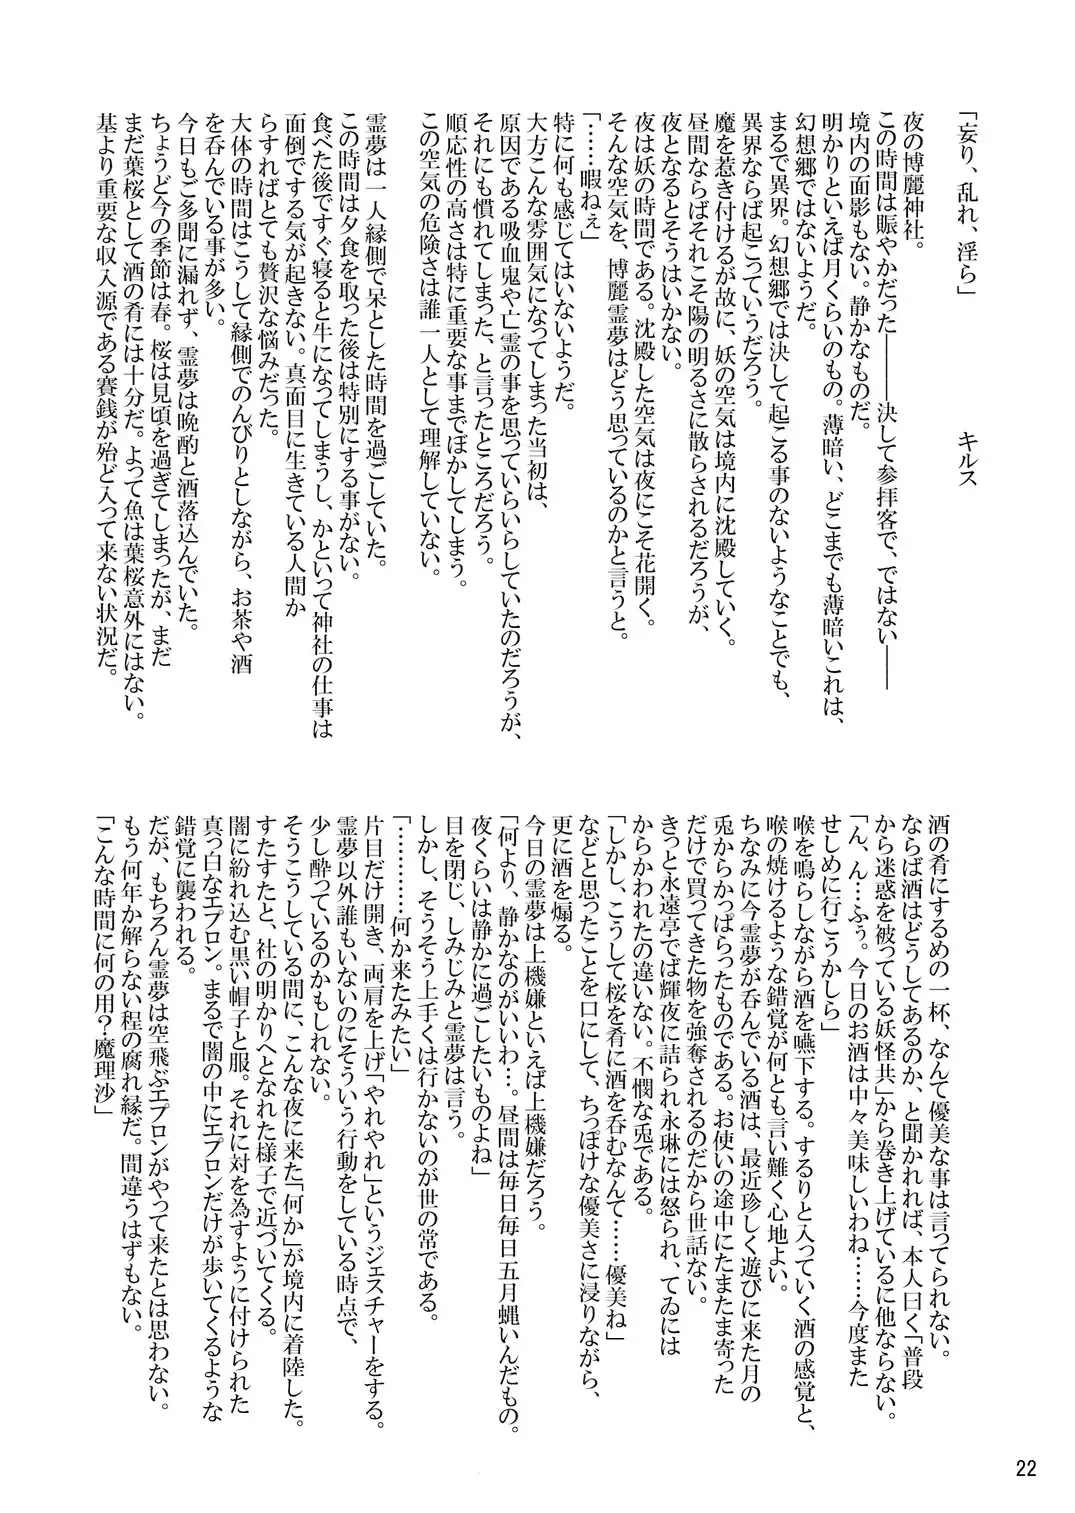 「妄り、乱れ、淫ら」　　　　キルス
夜の博麗神社。
この時間は賑やかだった―――決して参拝客で、ではない――
境内の面影もない。静かなものだ。
明かりといえば月くらいのもの。薄暗い、どこまでも薄暗いこれは、
幻想郷ではないようだ。
まるで異界。幻想郷では決して起こる事のないようなことでも、
異界ならば起こっていうだろう。
魔を惹き付けるが故に、妖の空気は境内に沈殿していく。
昼間ならばそれこそ陽の明るさに散らされるだろうが、
夜となるとそうはいかない。
夜は妖の時間である。沈殿した空気は夜にこそ花開く。
そんな空気を、博麗霊夢はどう思っているのかと言うと。
「……暇ねぇ」
特に何も感じてはいないようだ。
大方こんな雰囲気になってしまった当初は、
原因である吸血鬼や亡霊の事を思っていらいらしていたのだろうが、
それにも慣れてしまった、と言ったところだろう。
順応性の高さは特に重要な事までぼかしてしまう。
この空気の危険さは誰一人として理解していない。
霊夢は一人縁側で呆とした時間を過ごしていた。
この時間は夕食を取った後は特別にする事がない。
食べた後ですぐ寝ると牛になってしまうし、かといって神社の仕事は
面倒でする気が起きない。真面目に生きている人間か
らすればとても贅沢な悩みだった。
大体の時間はこうして縁側でのんびりとしながら、お茶や酒
を呑んでいる事が多い。
今日もご多聞に漏れず、霊夢は晩酌と洒落込んでいた。
ちょうど今の季節は春。桜は見頃を過ぎてしまったが、まだ
まだ葉桜として酒の肴には十分だ。よって魚は葉桜意外にはない。
基より重要な収入源である賽銭が殆ど入って来ない状況だ。
酒の肴にするめの一杯、なんて優美な事は言ってられない。
ならば酒はどうしてあるのか、と聞かれれば、本人曰く「普段
から迷惑を被っている妖怪共」から巻き上げているに他ならない。
「ん、ん…ふぅ。今日のお酒は中々美味しいわね……今度また
せしめに行こうかしら」
喉を鳴らしながら酒を嚥下する。するりと入っていく酒の感覚と、
喉の焼けるような錯覚が何とも言い難く心地よい。
ちなみに今霊夢が呑んでいる酒は、最近珍しく遊びに来た月の
兎からかっぱらったものである。お使いの途中にたまたま寄った
だけで買ってきた物を強奪されるのだから世話ない。
きっと永遠亭でば輝夜に詰られ永琳には怒られ、てゐには
からかわれたの違いない。不憫な兎である。
「しかし、こうして桜を肴に酒を呑むなんて……優美ね」
などと思ったことを口にして、ちっぽけな優美さに浸りながら、
更に酒を煽る。
今日の霊夢は上機嫌といえば上機嫌だろう。
「何より、静かなのがいいわ…。昼間は毎日毎日五月蝿いんだもの。
夜くらいは静かに過ごしたいものよね」
目を閉じ、しみじみと霊夢は言う。
しかし、そうそう上手くは行かないのが世の常である。
「…………何か来たみたい」
片目だけ開き、両肩を上げ「やれやれ」というジェスチャーをする。
霊夢以外誰もいないのにそういう行動をしている時点で、
少し酔っているのかもしれない。
そうこうしている間に、こんな夜に来た「何か」が境内に着陸した。
すたすたと、社の明かりへとなれた様子で近づいてくる。
闇に紛れ込む黒い帽子と服。それに対を為すように付けられた
真っ白なエプロン。まるで闇の中にエプロンだけが歩いてくるような
錯覚に襲われる。
だが、もちろん霊夢は空飛ぶエプロンがやって来たとは思わない。
もう何年か解らない程の腐れ縁だ。間違うはずもない。
「こんな時間に何の用？魔理沙」
22